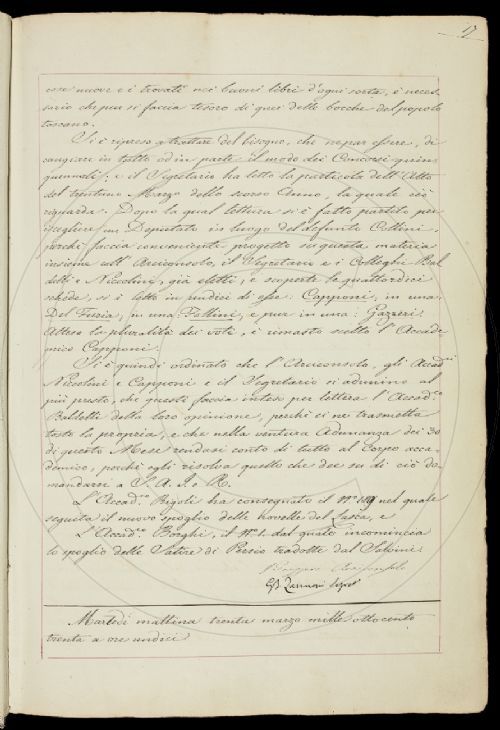 17
cose nuove e i trovati nei buoni libri d'ogni sorta, è neces-
sario che pur si faccia tesoro di quei delle bocche del popolo
toscano.
Si è ripreso a trattare del bisogno, che ne par essere, di
cangiare in tutto od in parte il modo dei Concorsi quin-
quennali; e il Segretario ha letto la particola dell'Atto
del trentuno Marzo dello scorso Anno, la quale ciò
riguarda. Dopo la qual lettura si è fatto partito per
iscegliere un Deputato in luogo del defunto Collini,
perchè faccia conveniente progetto su questa materia
insieme coll'Arciconsolo, il Segretario e i Colleghi Bal
detti e Niccolini, già eletti, e scoperte le quattordici
schede, si è letto in undici di esse: Capponi, in una:
Del Furia, in una: Pallini, e pure in una: Gazzeri.
Attesa la pluralità dei voti, è rimasto scelto l'Accade-
mico Capponi.
Si è quindi ordinato che l'Arciconsolo, gli Accad.ci
Niccolini e Capponi e il Segretario si adunino al
più presto, che questi faccia inteso per lettera l'Accad.co
Baldetti della loro opinione, perchè ei ne trasmetta
tosto la propria, e che nella ventura Adunanza dei 30
di questo Mese rendasi conto di tutto al Corpo acca-
demico, perchè egli risolva quello che dee su di ciò do-
mandarsi a S. A. I. e R.
L'Accad.co Rigoli ha consegnato il N.º nel quale
seguita il nuovo spoglio delle novelle del Lasca, e
L'Accad.co Borghi, il N.º 1. dal quale incomincia
lo spoglio delle Satire di Persio tradotte dal Salvini.
Arciconsolo
GB Zannoni Segret.
Martedì mattina trenta marzo mille ottocento
trenta a ore undici